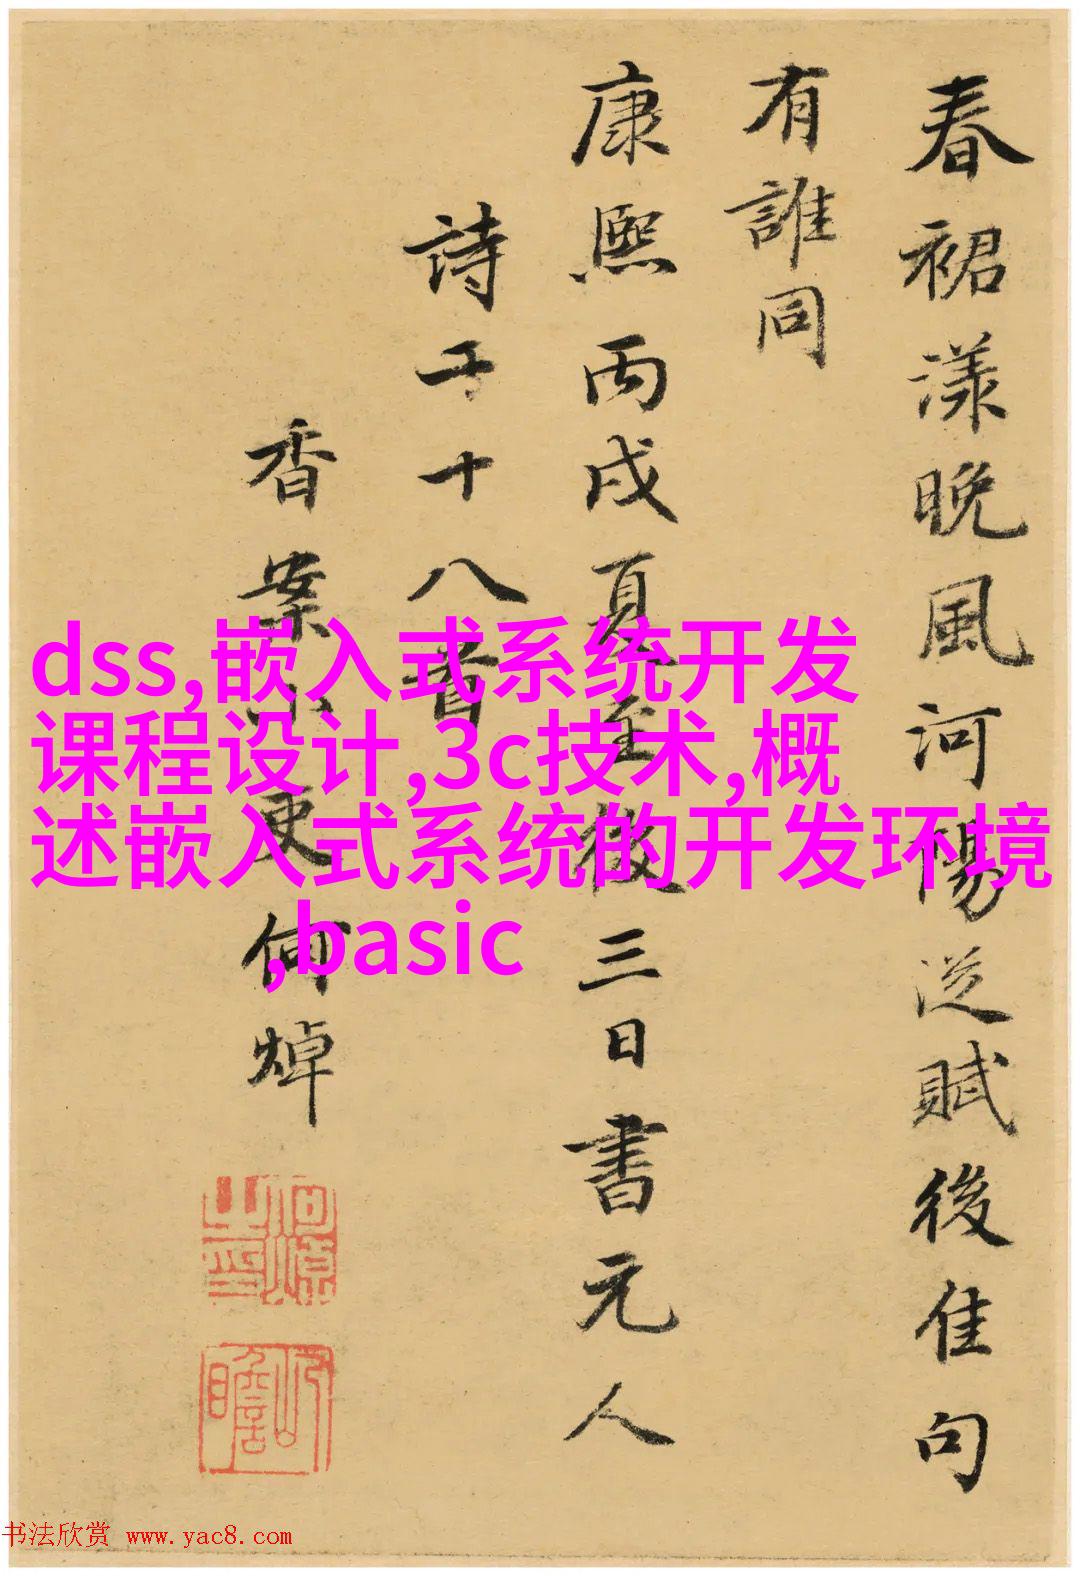 春裙漾晚風河陽從賦後佳句
有誰同
康熙丙戌夏至後三日書元人
詩十八首
香案小吏何焯
何焯之印
屺瞻
dss,嵌入式系统开发
课程设计,3c技术,概
述嵌入式系统的开发环境
,basic
书法欣赏 www.yac8.com